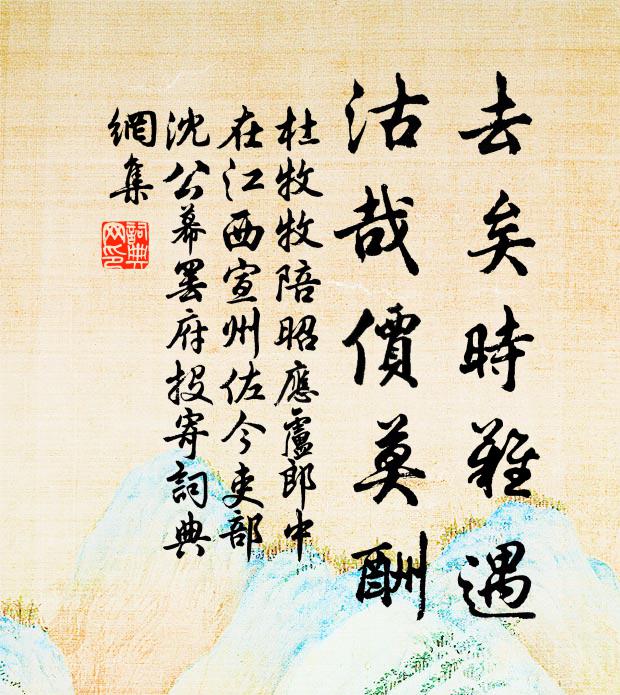 去矣時難遇
沽哉價莫酬
杜牧牧陪昭應盧郎中
在江西宣州佐今吏部
沈公幕罷府投寄詞典
網集
詞典網印